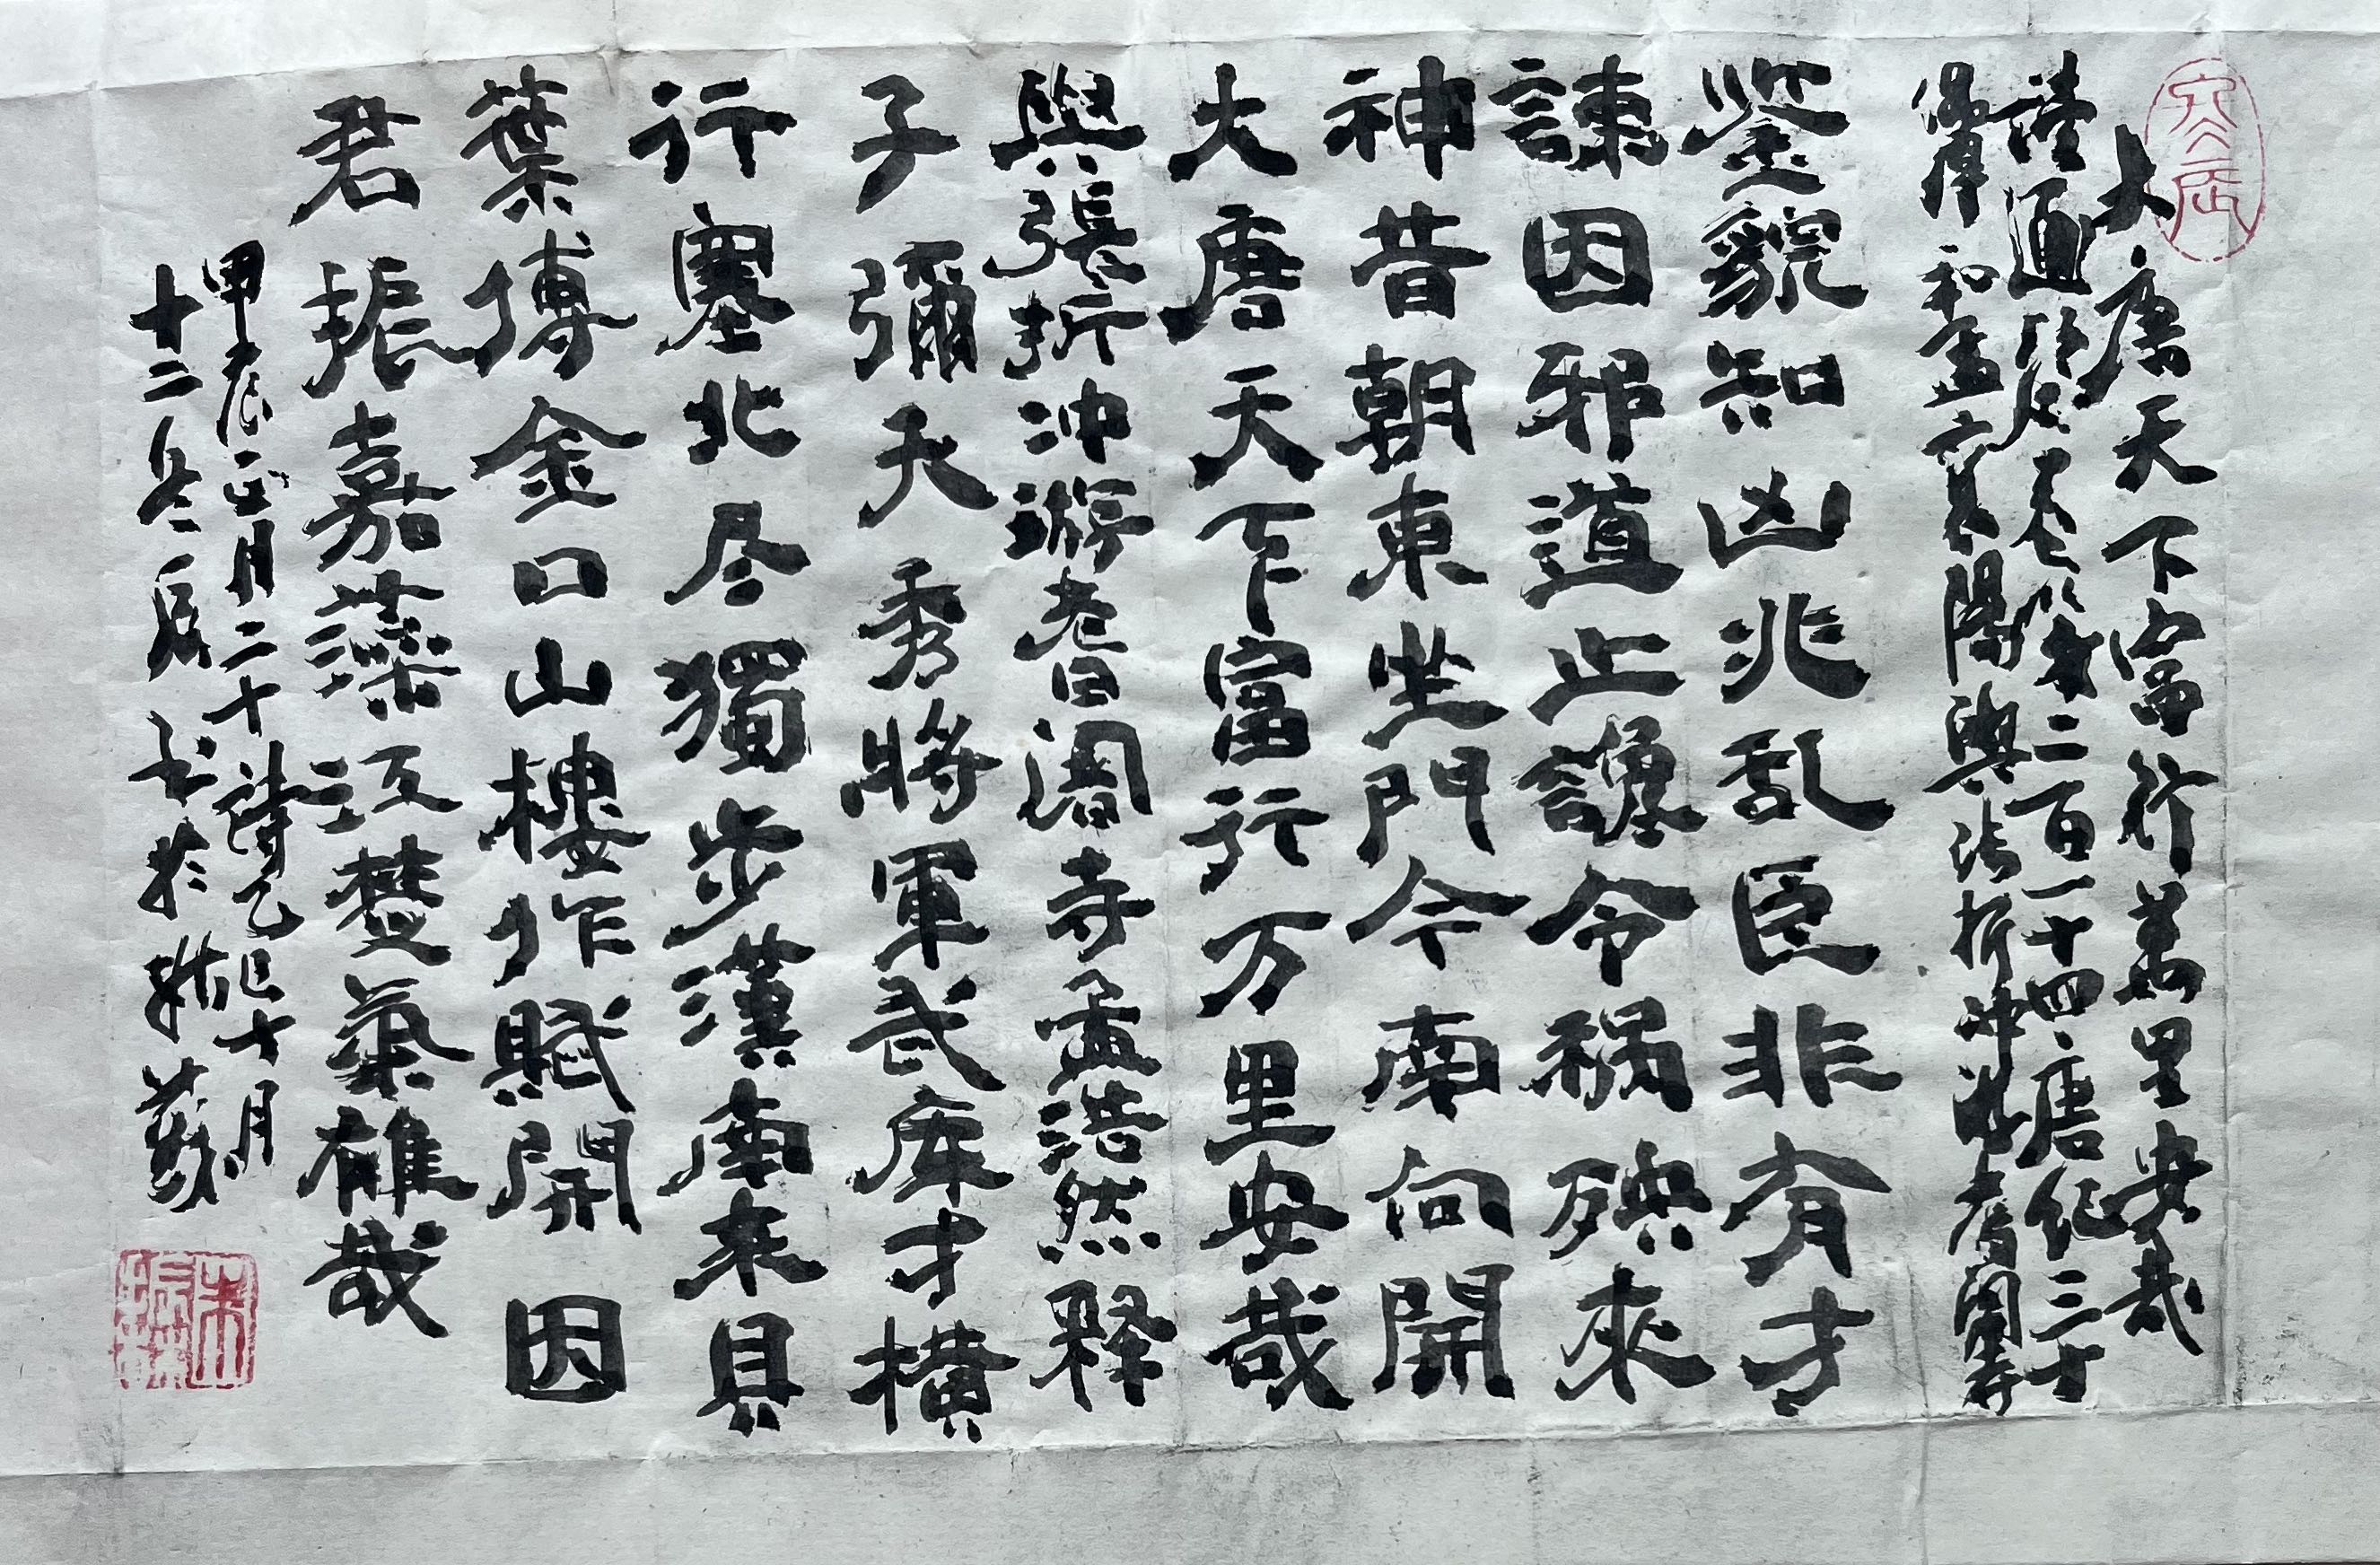 大唐天下富行萬里安哉
讀通鑑卷第二百一十四唐紀三十
偶得和孟襄陽與張折沖游耆闍寺
鉴貌知凶兆乱臣非有才
諫因邪道止讒令祸殃來
神昔朝東坐門今南向開
大唐天下富行万里安哉
與張折冲游耆闍寺孟浩然
释子彌天秀將軍武库才橫
行塞北尽獨步漢南来貝
葉傳金口山樓作賦開因
君振嘉藻江楚氣雄哉
甲辰正月二十詩乙巳十月
十二冬辰书於